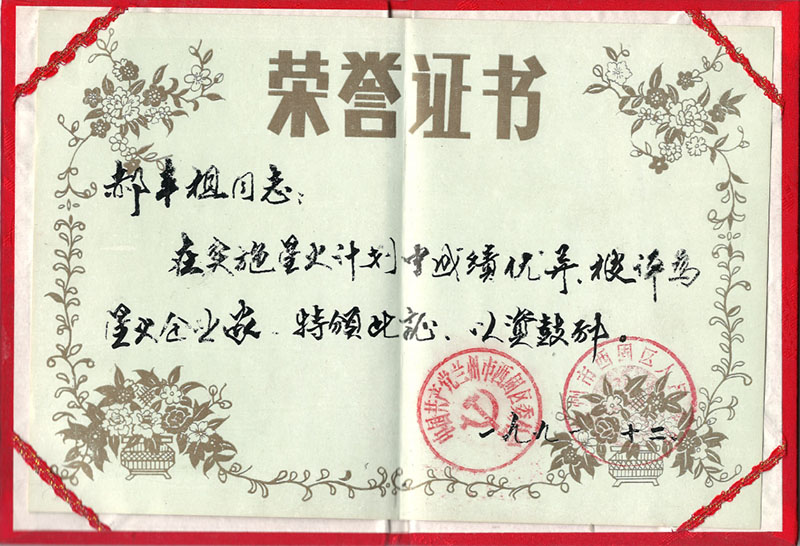 荣誉证书
郝丰祖同志：
在实施星火计划中成绩优异、被评为
星火企业家、特颁此证、以资鼓励。
中国共产党兰州市西固区委员会
州市西固区人民
一九九一 十二